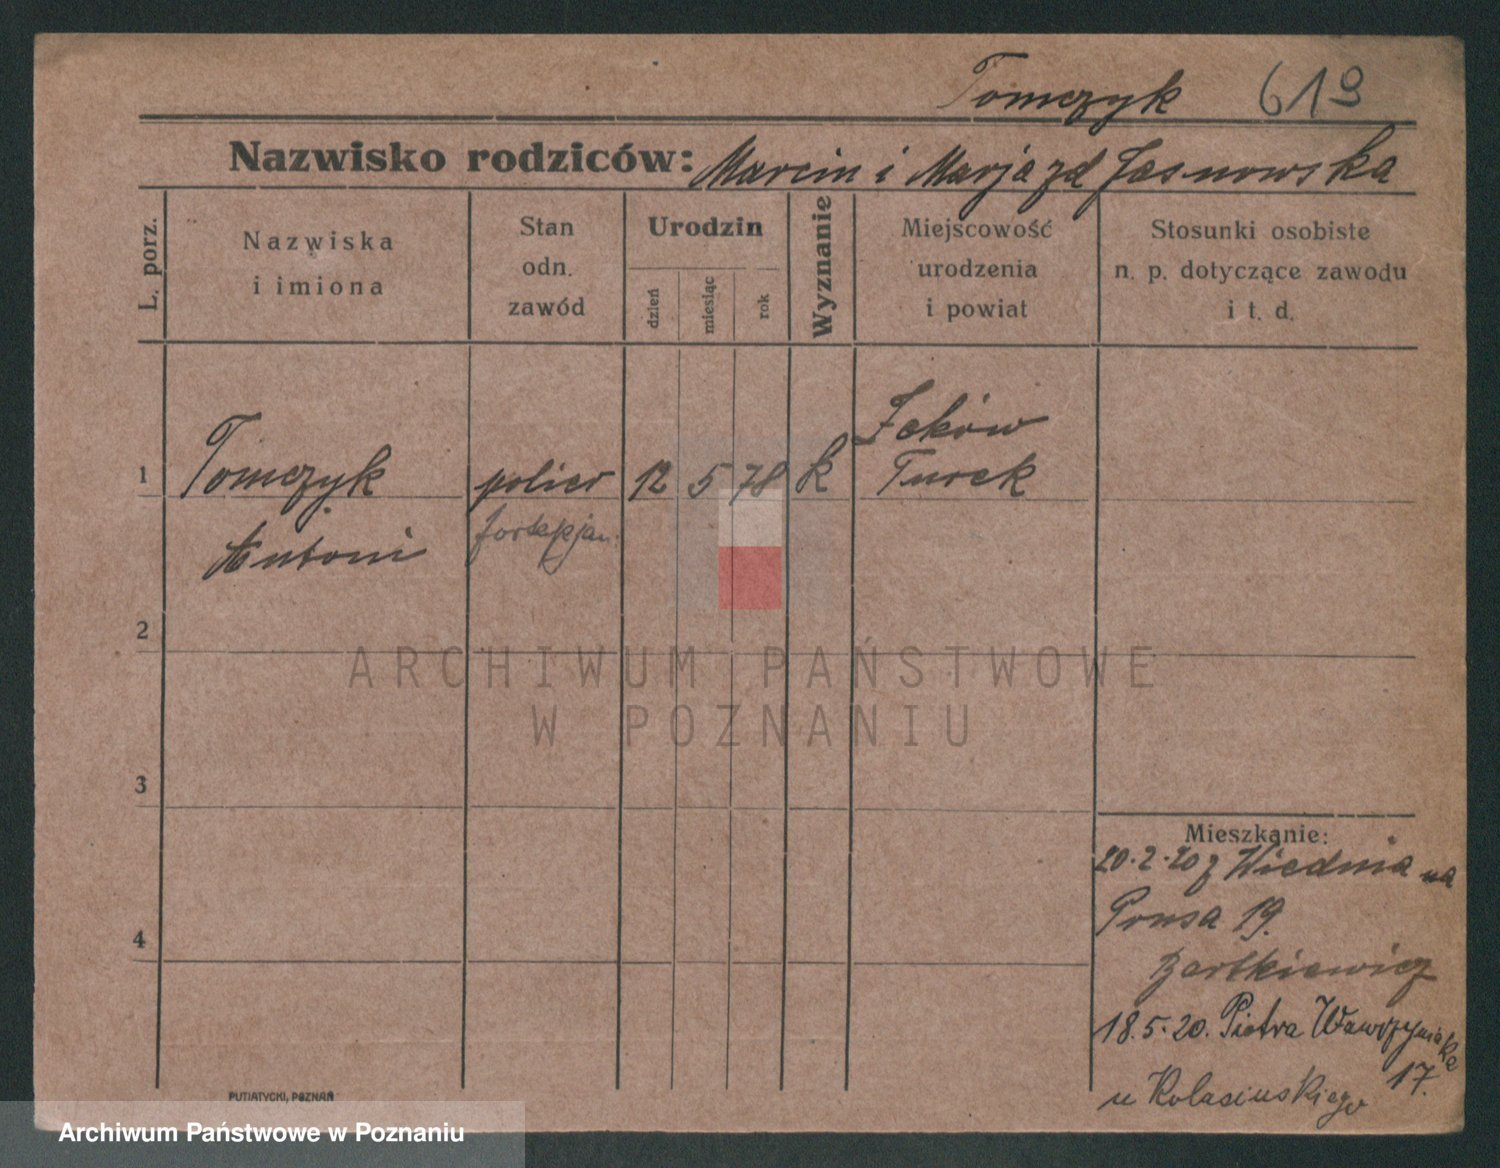 Tomczyk 619
Nazwisko rodziców: Marcin i Marja zd Jasnowska
L. porz.
Nazwiska
i imiona
Stan
odn.
zawód
Urodzin
dzień
miesiąc
rok
Wyznanie
Miejscowość
urodzenia
i powiat
Stosunki osobiste
n. p. dotyczące zawodu
i t. d.
1 Tomczyk polier 12 5 78 k
Turek
Antoni
fortepjan.
2
ARCHIWUM PAŃSTWOWE
W POZNANIU
3
4
Mieszkanie:
20.2.20 z Wiednia na
Prusa 19.
Bartkiewicz
18.5.20. Piotra Wawrzyniaka
17.
u Kolasiuskiego
PUTIATYCKI, POZNAŃ
Archiwum Państwowe w Poznaniu